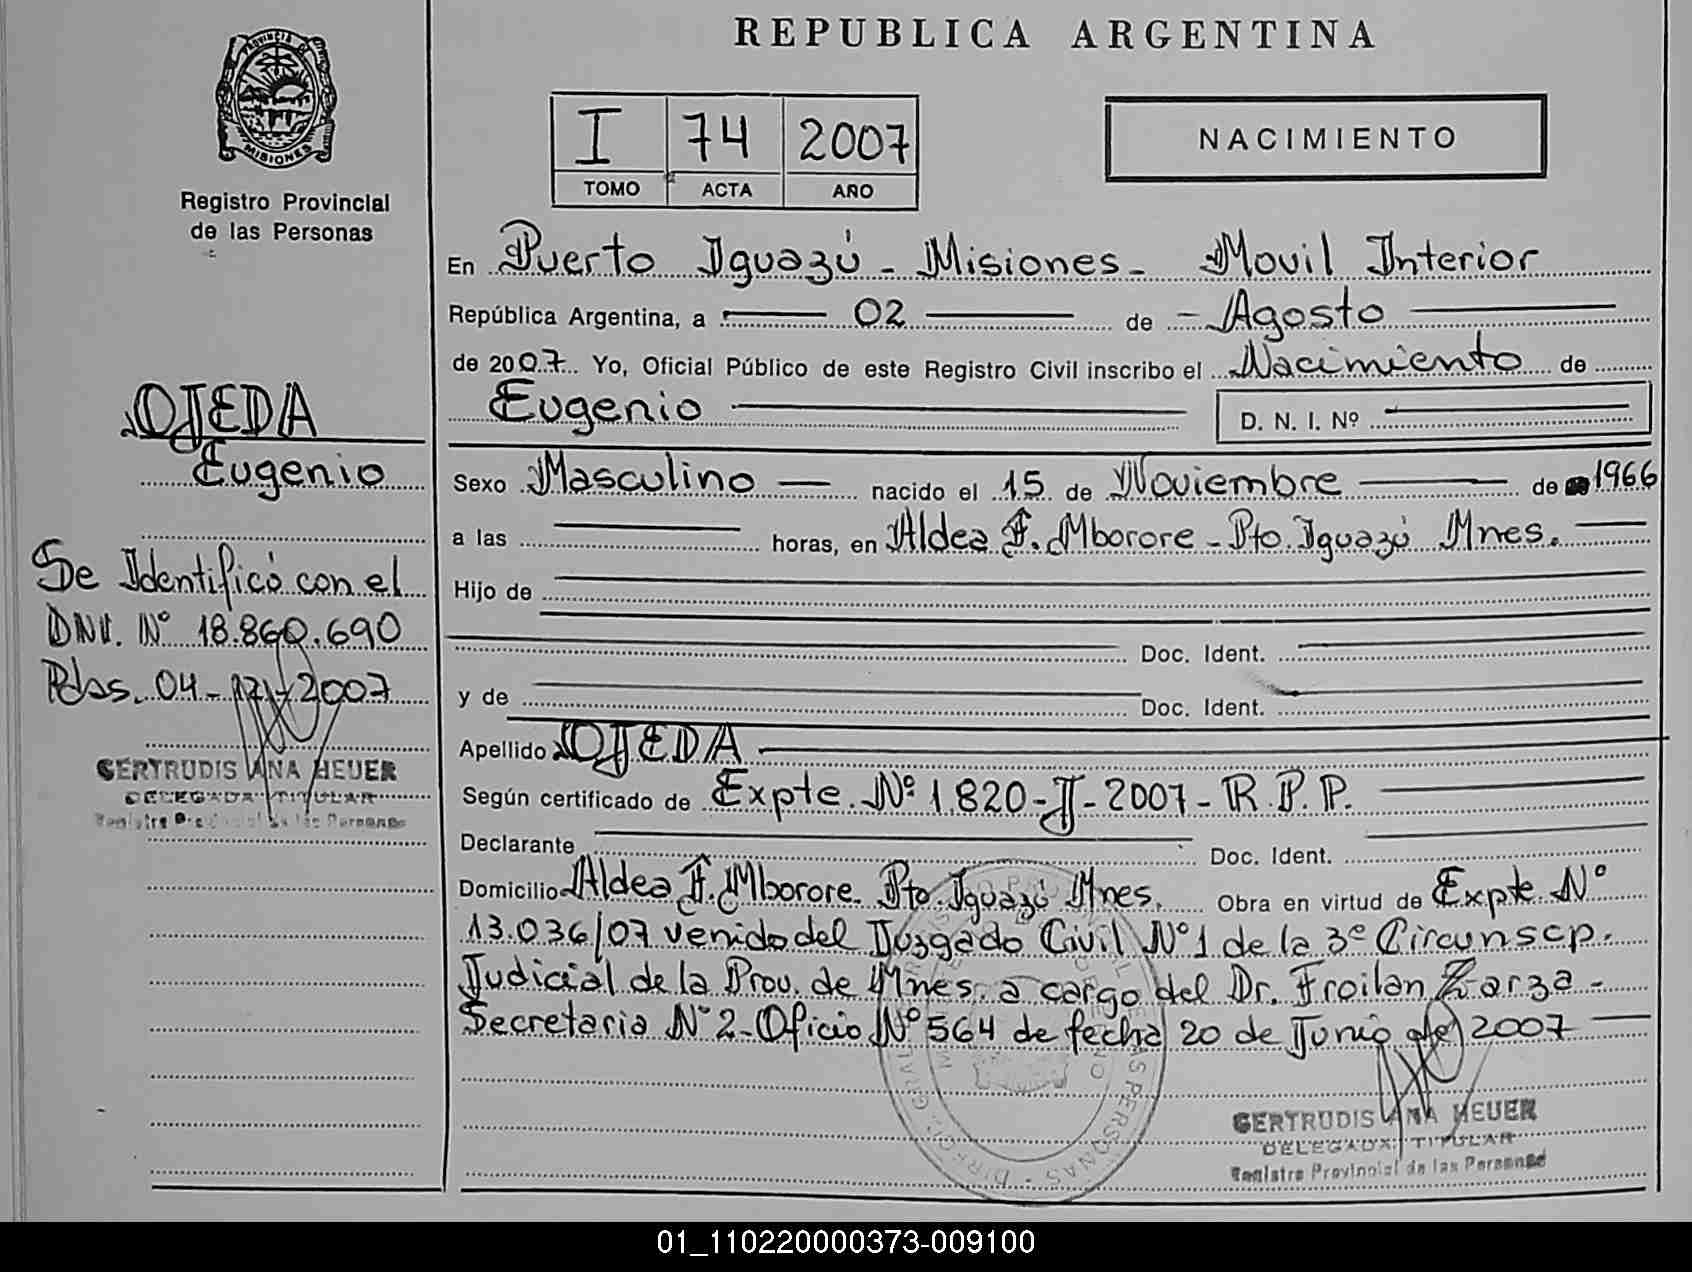 REPUBLICA ARGENTINA
PROVINCIA DE
MISIONES
Registro Provincial
de las Personas
I 74 2007
TOMO ACTA AÑO
NACIMIENTO
En Puerto Iguazú - Misiones - Movil Interior
República Argentina, a 02 de Agosto
de 2007. Yo, Oficial Público de este Registro Civil inscribo el Nacimiento de
Eugenio D. N. I. Nº
Sexo Masculino nacido el 15 de Noviembre de 1966
a las horas, en Aldea F. Mborore - Pto Iguazú Mnes.
Hijo de
Doc. Ident.
y de Doc. Ident.
Apellido OJEDA
Según certificado de Expte. Nº 1.820-J-2007-R.P.P.
Declarante Doc. Ident.
Domicilio Aldea F. Mborore. Pto. Iguazú Mnes. Obra en virtud de Expte Nº
13.036/07 venido del Juzgado Civil Nº1 de la 3º Circunscp.
Judicial de la Prov. de Mnes. a cargo del Dr. Froilan Zarza -
Secretaria Nº 2 - Oficio Nº 564 de fecha 20 de Junio de 2007
GERTRUDIS ANA HEUER
DELEGADA TITULAR
Registro Provincial de las Personas
OJEDA
Eugenio
Se Identificó con el
DNI. Nº 18.860.690
Pdas. 04-12-2007
GERTRUDIS ANA HEUER
DELEGADA TITULAR
Registro Provincial de las Personas
01_110220000373-009100